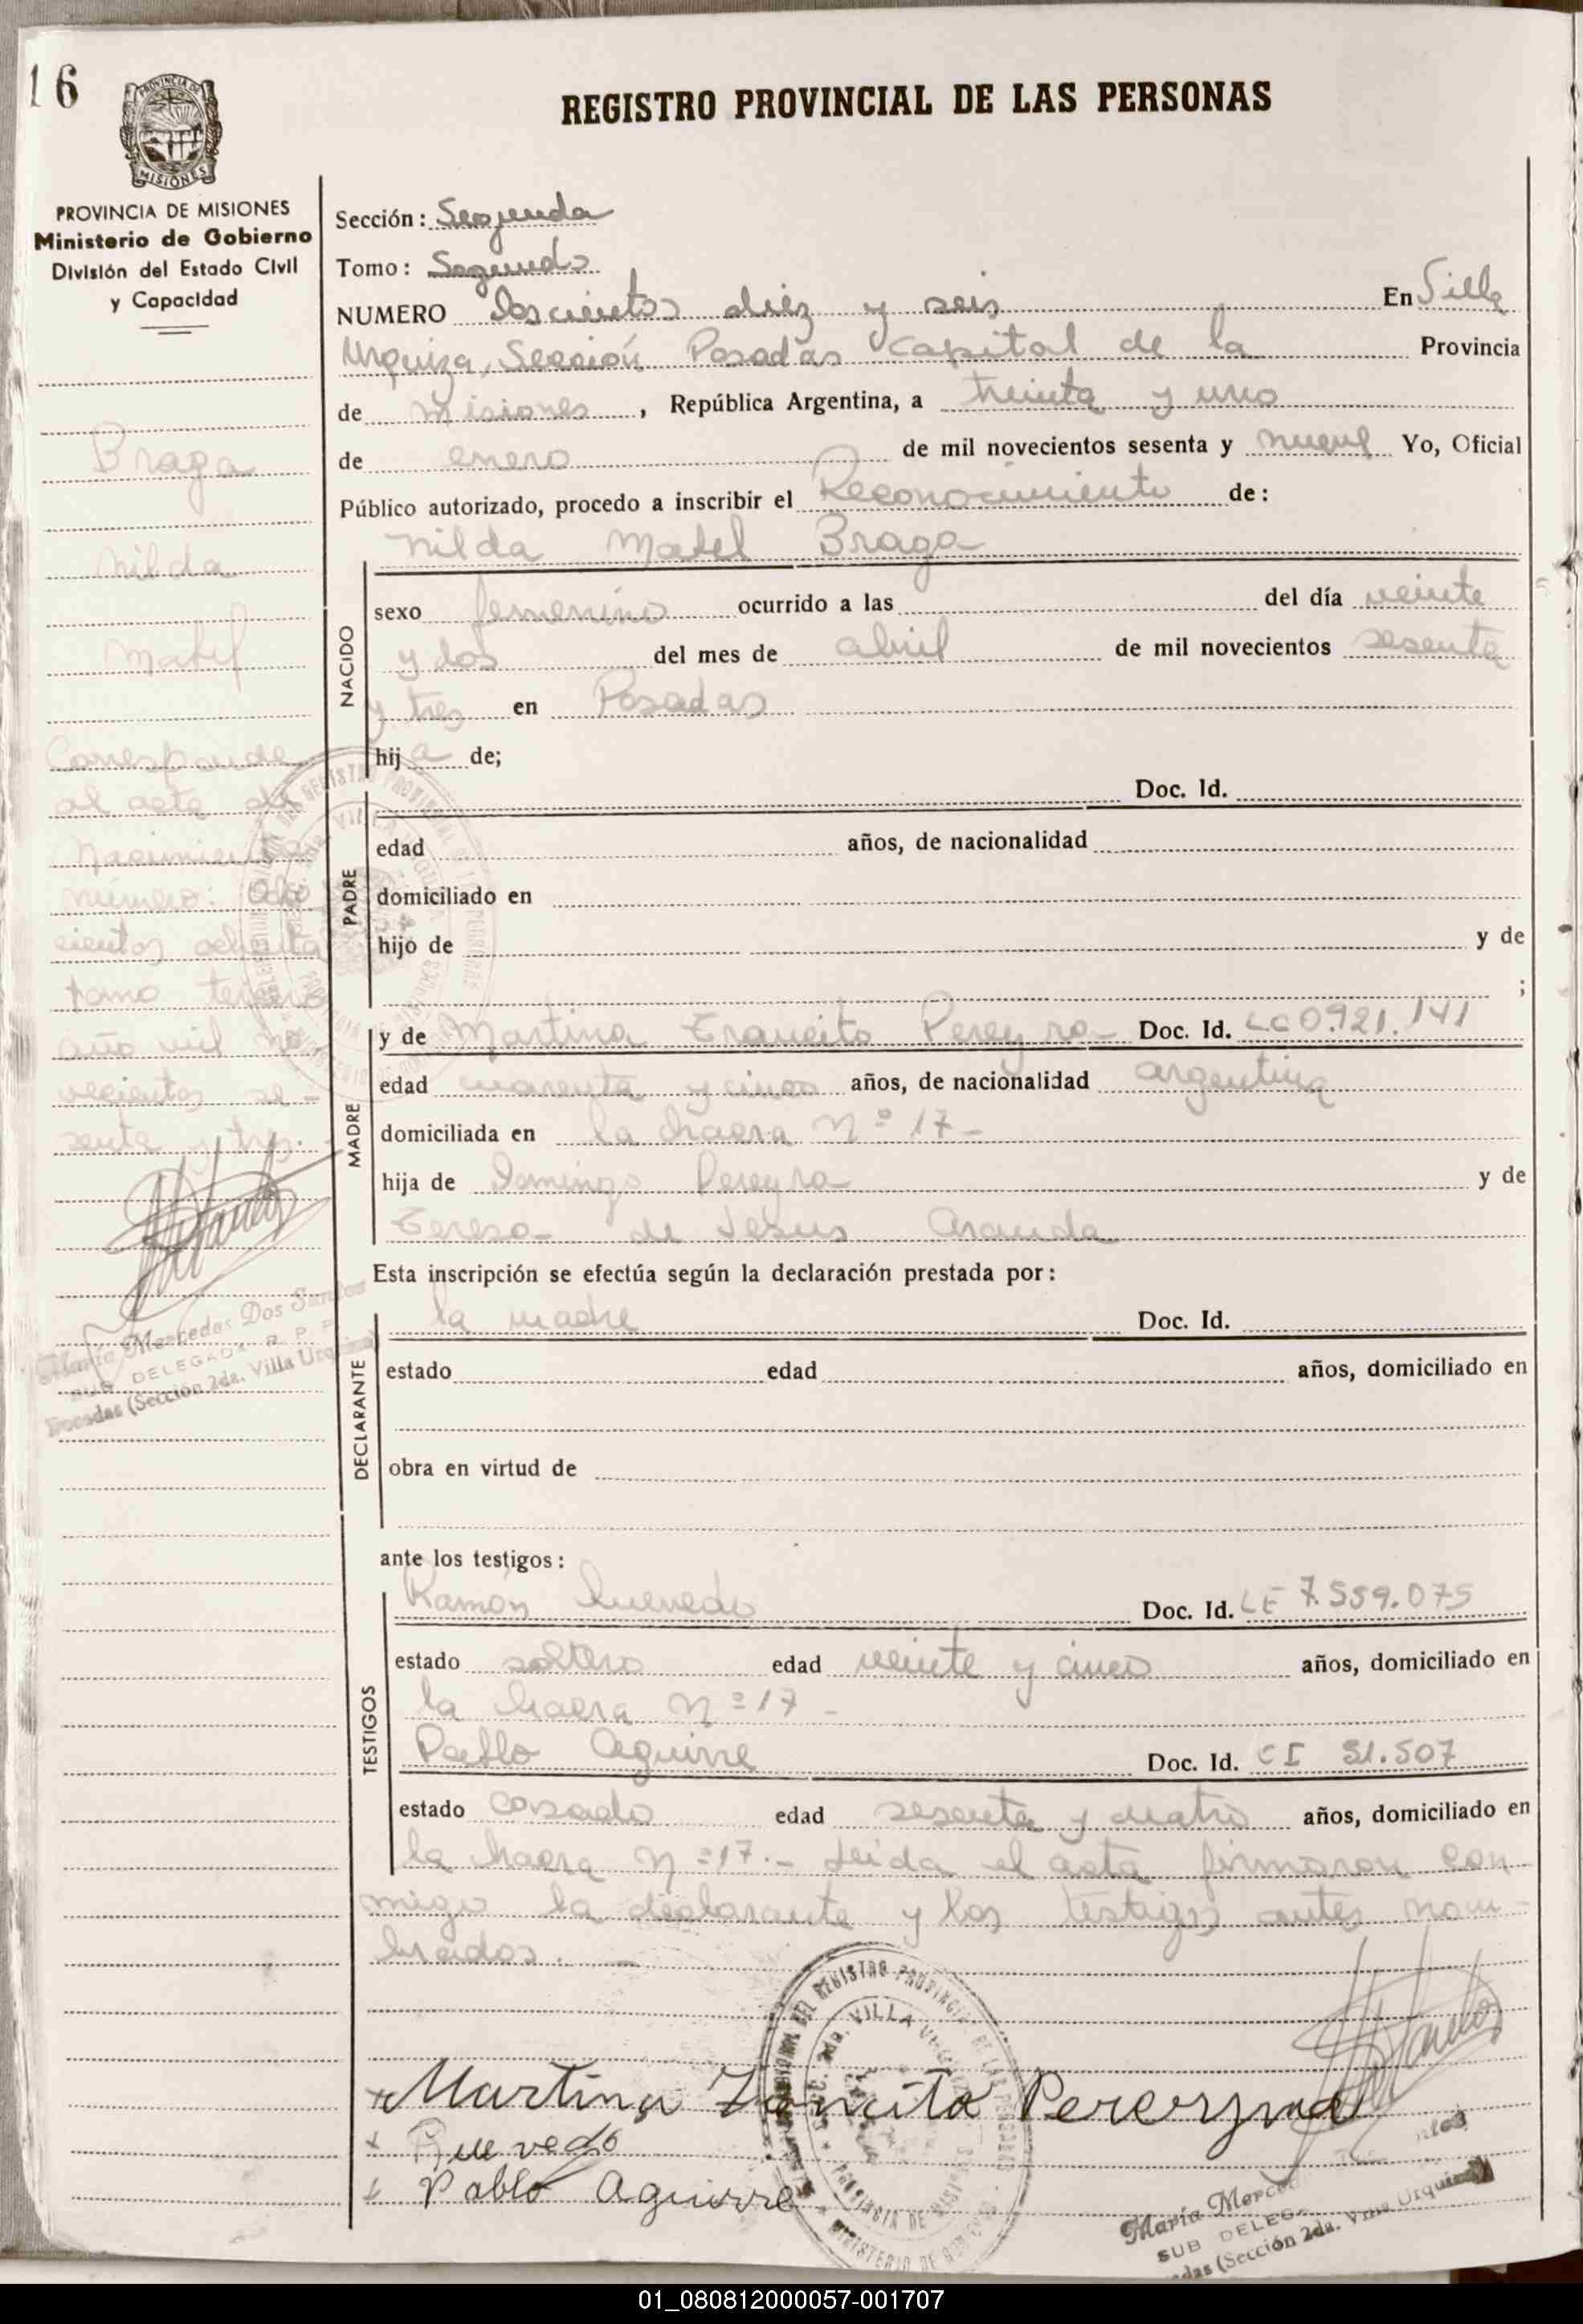 16
PROVINCIA DE MISIONES
Ministerio de Gobierno
División del Estado Civil
y Capacidad
REGISTRO PROVINCIAL DE LAS PERSONAS
Sección: Segunda
Tomo: Segundo
NUMERO Doscientos diez y seis En Villa
Urquiza, Sección Posadas Capital de la Provincia
de Misiones, República Argentina, a treinta y uno
de enero de mil novecientos sesenta y nueve Yo, Oficial
Público autorizado, procedo a inscribir el Reconocimiento de:
Nilda Mabel Braga
NACIDO
sexo femenino ocurrido a las del día veinte
y dos del mes de abril de mil novecientos sesenta
y tres en Posadas
hija de;
PADRE
Doc. Id.
edad años, de nacionalidad
domiciliado en
hijo de y de
;
MADRE
y de Martina Trancito Pereyra Doc. Id. LC 0.921.141
edad cuarenta y cinco años, de nacionalidad argentina
domiciliada en la chacra Nº 17-
hija de Domingo Pereyra y de
Teresa de Jesus Aranda
Esta inscripción se efectúa según la declaración prestada por:
DECLARANTE
la madre Doc. Id.
estado edad años, domiciliado en
obra en virtud de
ante los testigos:
TESTIGOS
Ramón Quevedo Doc. Id. LE 7.559.075
estado soltero edad veinte y cinco años, domiciliado en
la chacra Nº 17 -
Pablo Aguirre Doc. Id. CI 31.507
estado casado edad sesenta y cuatro años, domiciliado en
la chacra Nº 17.- Leida el acta firmaron con-
migo la declarante y los testigos antes nom-
brados.
Braga
Nilda
Mabel
Corresponde
al acta de
Nacimiento
número: Ocho
cientos ochenta
tomo tercero
año mil no-
vecientos se-
senta y tres.
María Mercedes Dos Santos
SUB DELEGADA R. P. P.
Posadas (Sección 2da. Villa Urquiza)
x Martina Trancito Pereryra
x Quevedo
x Pablo Aguirre
VILLA
PROVINCIA DE MISIONES
María Merce
SUB DELEGA
das (Sección 2da. Villa Urquiza)
01_080812000057-001707